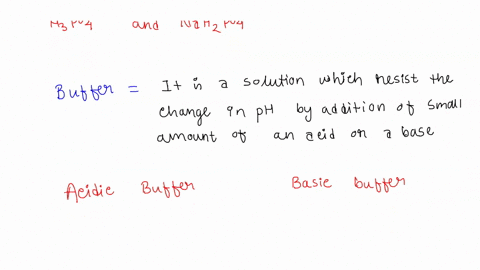 H3PO4 and NaH2PO4
Buffer = It is a solution which resist the
change in pH by addition of small
amount of an acid or a base
Acidic Buffer Basic buffer